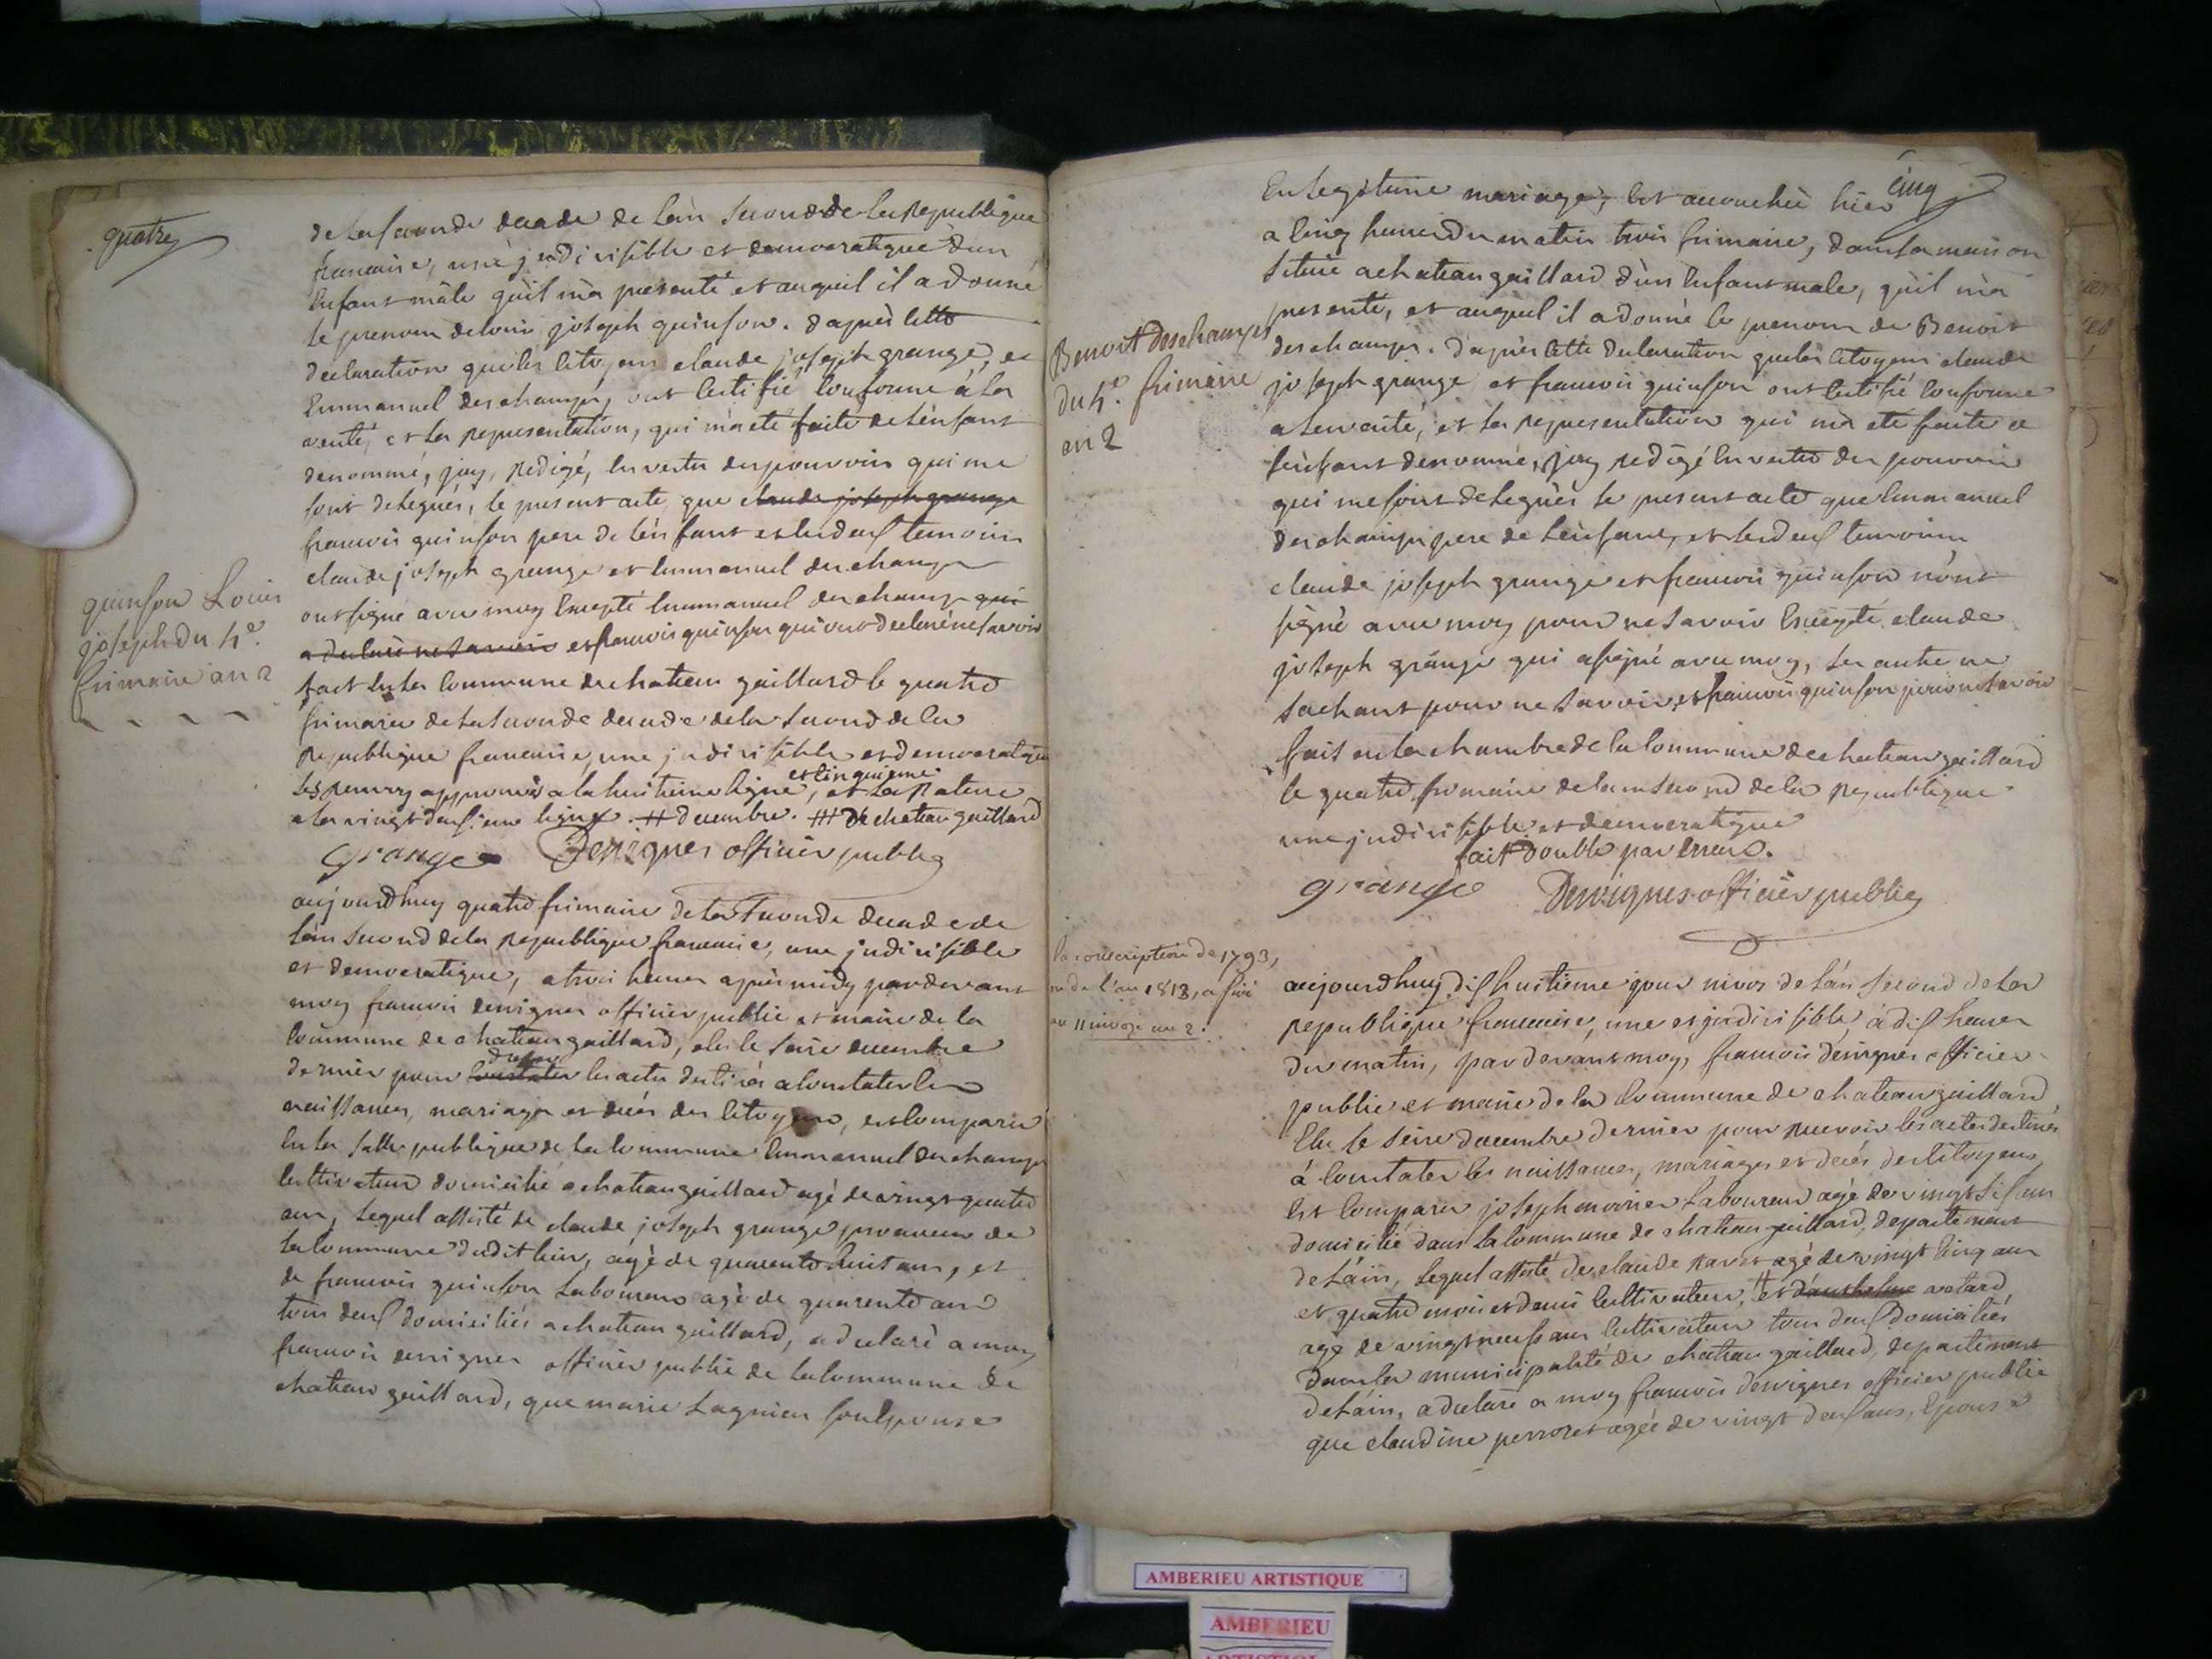 quatre
de la seconde decade de l'an second de la Republique
francaise, une jndivisible et democratique d'un
Enfant mâle qu'il m'a presenté et auquel il a donné
le prenom de louis joseph quinson. d'après cette
declaration que les citoyens claude joseph grange, et
Emmanuel deschamps, ont certifié conforme à la
verité, et la representation, qui m'a eté faite de l'enfant
denommé, j'ay, redigé, en vertu des pouvoirs qui me
sont delegués, le present acte que claude joseph grange
francois quinson pere de l'enfant et les deux temoins
claude joseph grange et Emmanuel deschamps
ont signé avec moy Excepté Emmanuel deschamps qui
a declaré ne savoir et francois quinson qui ont declaré ne savoir
fait en la Commune de chateau gaillard le quatre
frimaire de la seconde decade de la second de la
Republique francaise, une jndivisible et democratique
les renvoy approuvés a la huitieme ligne, et cinquieme et la Rature
a la vingt deuxieme ligne. # decembre. ## de chateau gaillard
Grange Desvignes officier public
quinson Louis
joseph du 4e.
frimaire an 2
aujourdhuy quatre frimaire de la seconde decade de
l'an second de la Republique francaise, une jndivisible
et democratique, a trois heures après midy pardevant
moy francois desvignes officier public et maire de la
Commune de chateau gaillard, elu le seize decembre
dernier pour constater les actes destinés a constater les
naissances, mariages et decés des Citoyens, est comparu
En la salle publique de la Commune Emmanuel deschamps
Cultivateur domicilié a chateau gaillard agé de vingt quatre
ans, lequel assisté de claude joseph grange procureur de
la Commune dudit lieu, agé de quarante huit ans, et
de francois quinson laboureur agé de quarente ans
tous deux domiciliés a chateau gaillard, a declaré a moy
francois desvignes officier public de la Commune de
chateau gaillard, que marie Lagnieu son Epouse
cinq
En legitime mariage, Est accouchée hier
a Cinq heures du matin trois frimaire, dans sa maison
située a chateau gaillard d'un Enfant male, qu'il m'a
presenté, et auquel il a donné le prenom de Benoit
deschamps. d'après cette declaration que les citoyens claude
joseph grange et francois quinson ont certifié conforme
a la verité, et la representation qui m'a eté faite de
l'enfant denommé, j'ay redigé En vertu des pouvoirs
qui me sont delegués le present acte que Emmanuel
deschamps pere de l'enfant, et les deux temoins
claude joseph grange et francois quinson n'ont
signé avec moy pour ne savoir Excepté claude
joseph grange qui a signé avec moy, les autre ne
sachant pour ne savoir, et francois quinson
fait en la chambre de la Commune de chateau gaillard
le quatre frimaire de l'an second de la Republique
une jndivisible et democratique
fait double par Erreur.
grange Desvignes officier public
Benoit deschamps
du 4e. frimaire
an 2
la conscription de 1793,
ou de l'an 1813, a fini
au 11 nivoze an 2.
aujourdhuy dix huitieme jour nivos de l'an second de la
republique francaise, une et jndivisible, à dix heures
du matin, par devant moy, francois desvignes officier
public et maire de la Commune de chateau gaillard
Elu le seize decembre dernier pour recevoir les actes destinés
à Constater les naissances, mariages et decés des Citoyens,
Est Comparu joseph laboureur agé de vingt six ans
domicilié dans la Commune de chateau gaillard, departement
de l'ain, lequel assisté de claude agé de vingt cinq ans
et quatre mois et demi Cultivateur, # et
agé de vingt neuf ans Cultivateur tous deux Domiciliés
dans la municipalité de chateau gaillard, departement
de l'ain, a declaré a moy francois desvignes officier public
que claudine perroset agée de vingt deux ans, Epouse
AMBERIEU ARTISTIQUE
AMBERIEU
ARTISTIQUE